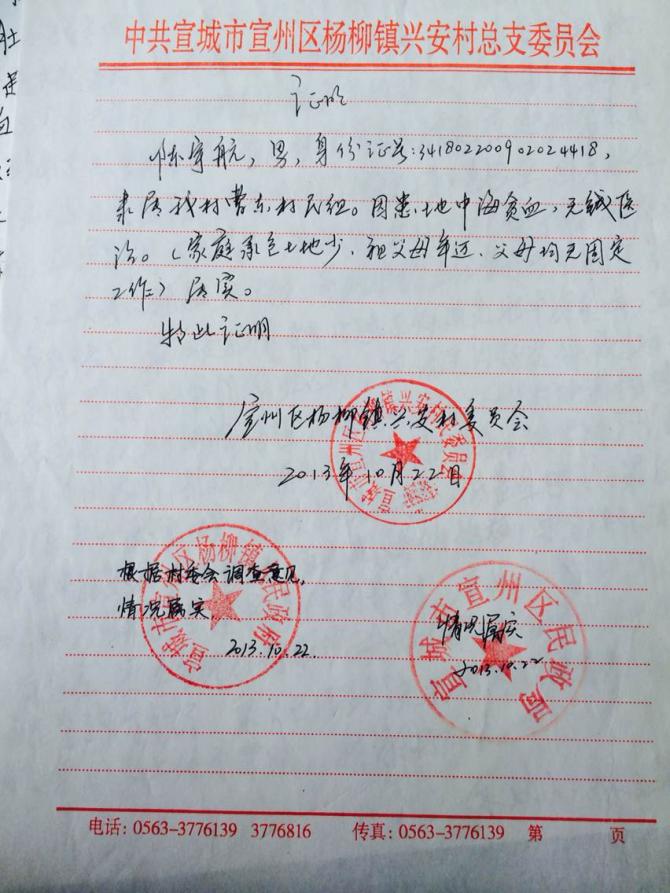 中共宣城市宣州区杨柳镇兴安村总支委员会
证明
陈宇航，男，身份证号:341802200902024418，
隶属我村曹东村民组。因患地中海贫血，无钱医
治。（家庭承包土地少、祖父母年迈、父母均无固定
工作）属实。
特此证明
宣州区杨柳镇兴安村委员会
2013年10月22日
宣城市宣州区杨柳镇兴安村民委员会
根据村委会调查意见，
情况属实
2013.10.22.
宣城市宣州区杨柳镇人民政府
情况属实
2013.10.22
宣城市宣州区民政局
电话: 0563-3776139 3776816 传真: 0563-3776139 第 页